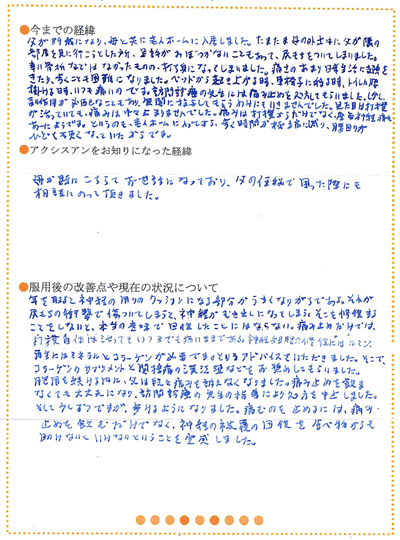 ●今までの経緯
父が89歳になり、母と共に老人ホームに入居しました。たまたま母の外出中に父が隣の
部屋を見に行こうとした所、足許がおぼつかないこともあって、尻もちをついてしまいました。
青い骨折などはなかったものの、打ち身になってしまいました。痛さのあまり日常生活に支障を
きたし、歩くことも困難になりました。ベッドから起き上がる時、車椅子に移る時、トイレに
いつも痛いのです。訪問診療の先生には痛み止めを処方してもらいました。しかし、
痛みは中々止まりませんでした。痛みは打撲からだけでなく、座骨神経痛も
あったようです。というのも、老人ホームに入ってから、歩く時間が極端に減り、腰回りが
ひどく悪くなっていたからです。
●アクシスアンをお知りになった経緯
母が既にこちらでお世話になっており、父の便秘で困った際にも
相談にのって頂きました。
●服用後の改善点や現在の状況について
年を取ると神経の周りのクッションになる部分がうすくなりがちである。それが
尻もちの衝撃で傷ついてしまうと、神経がむき出しになってしまう。そこを修復する
ことをしないと、本当の意味で回復したことにはならない。痛み止めだけでは、
打撲自体は治ってもいつまでも痛いままである。
再生にはミネラルとコラーゲンが必要ですというアドバイスをいただきました。そこで、
コラーゲンのサプリメントと関接痛の漢法薬などをお奨めしてもらいました。
服用を続ける内に、父は段々痛みを訴えなくなりました。痛み止めを飲ま
なくても大丈夫になり、訪問診療の先生の指導により処方を中止しました。
そして少しずつですが、歩けるようになりました。痛むのを止めるには、痛み
止めを飲むだけでなく、神経の被覆の回復を食べ物からも
助けないといけないということを実感しました。